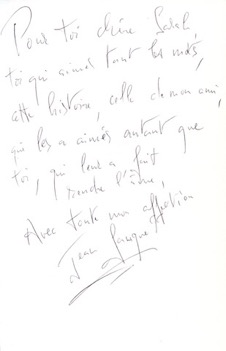 Pour toi chère Sarah
toi qui aimes tant les mots,
cette histoire, celle de mon ami,
qui les a aimés autant que
toi, qui leur a fait
rendre l'âme,
Avec toute mon affection
Jean